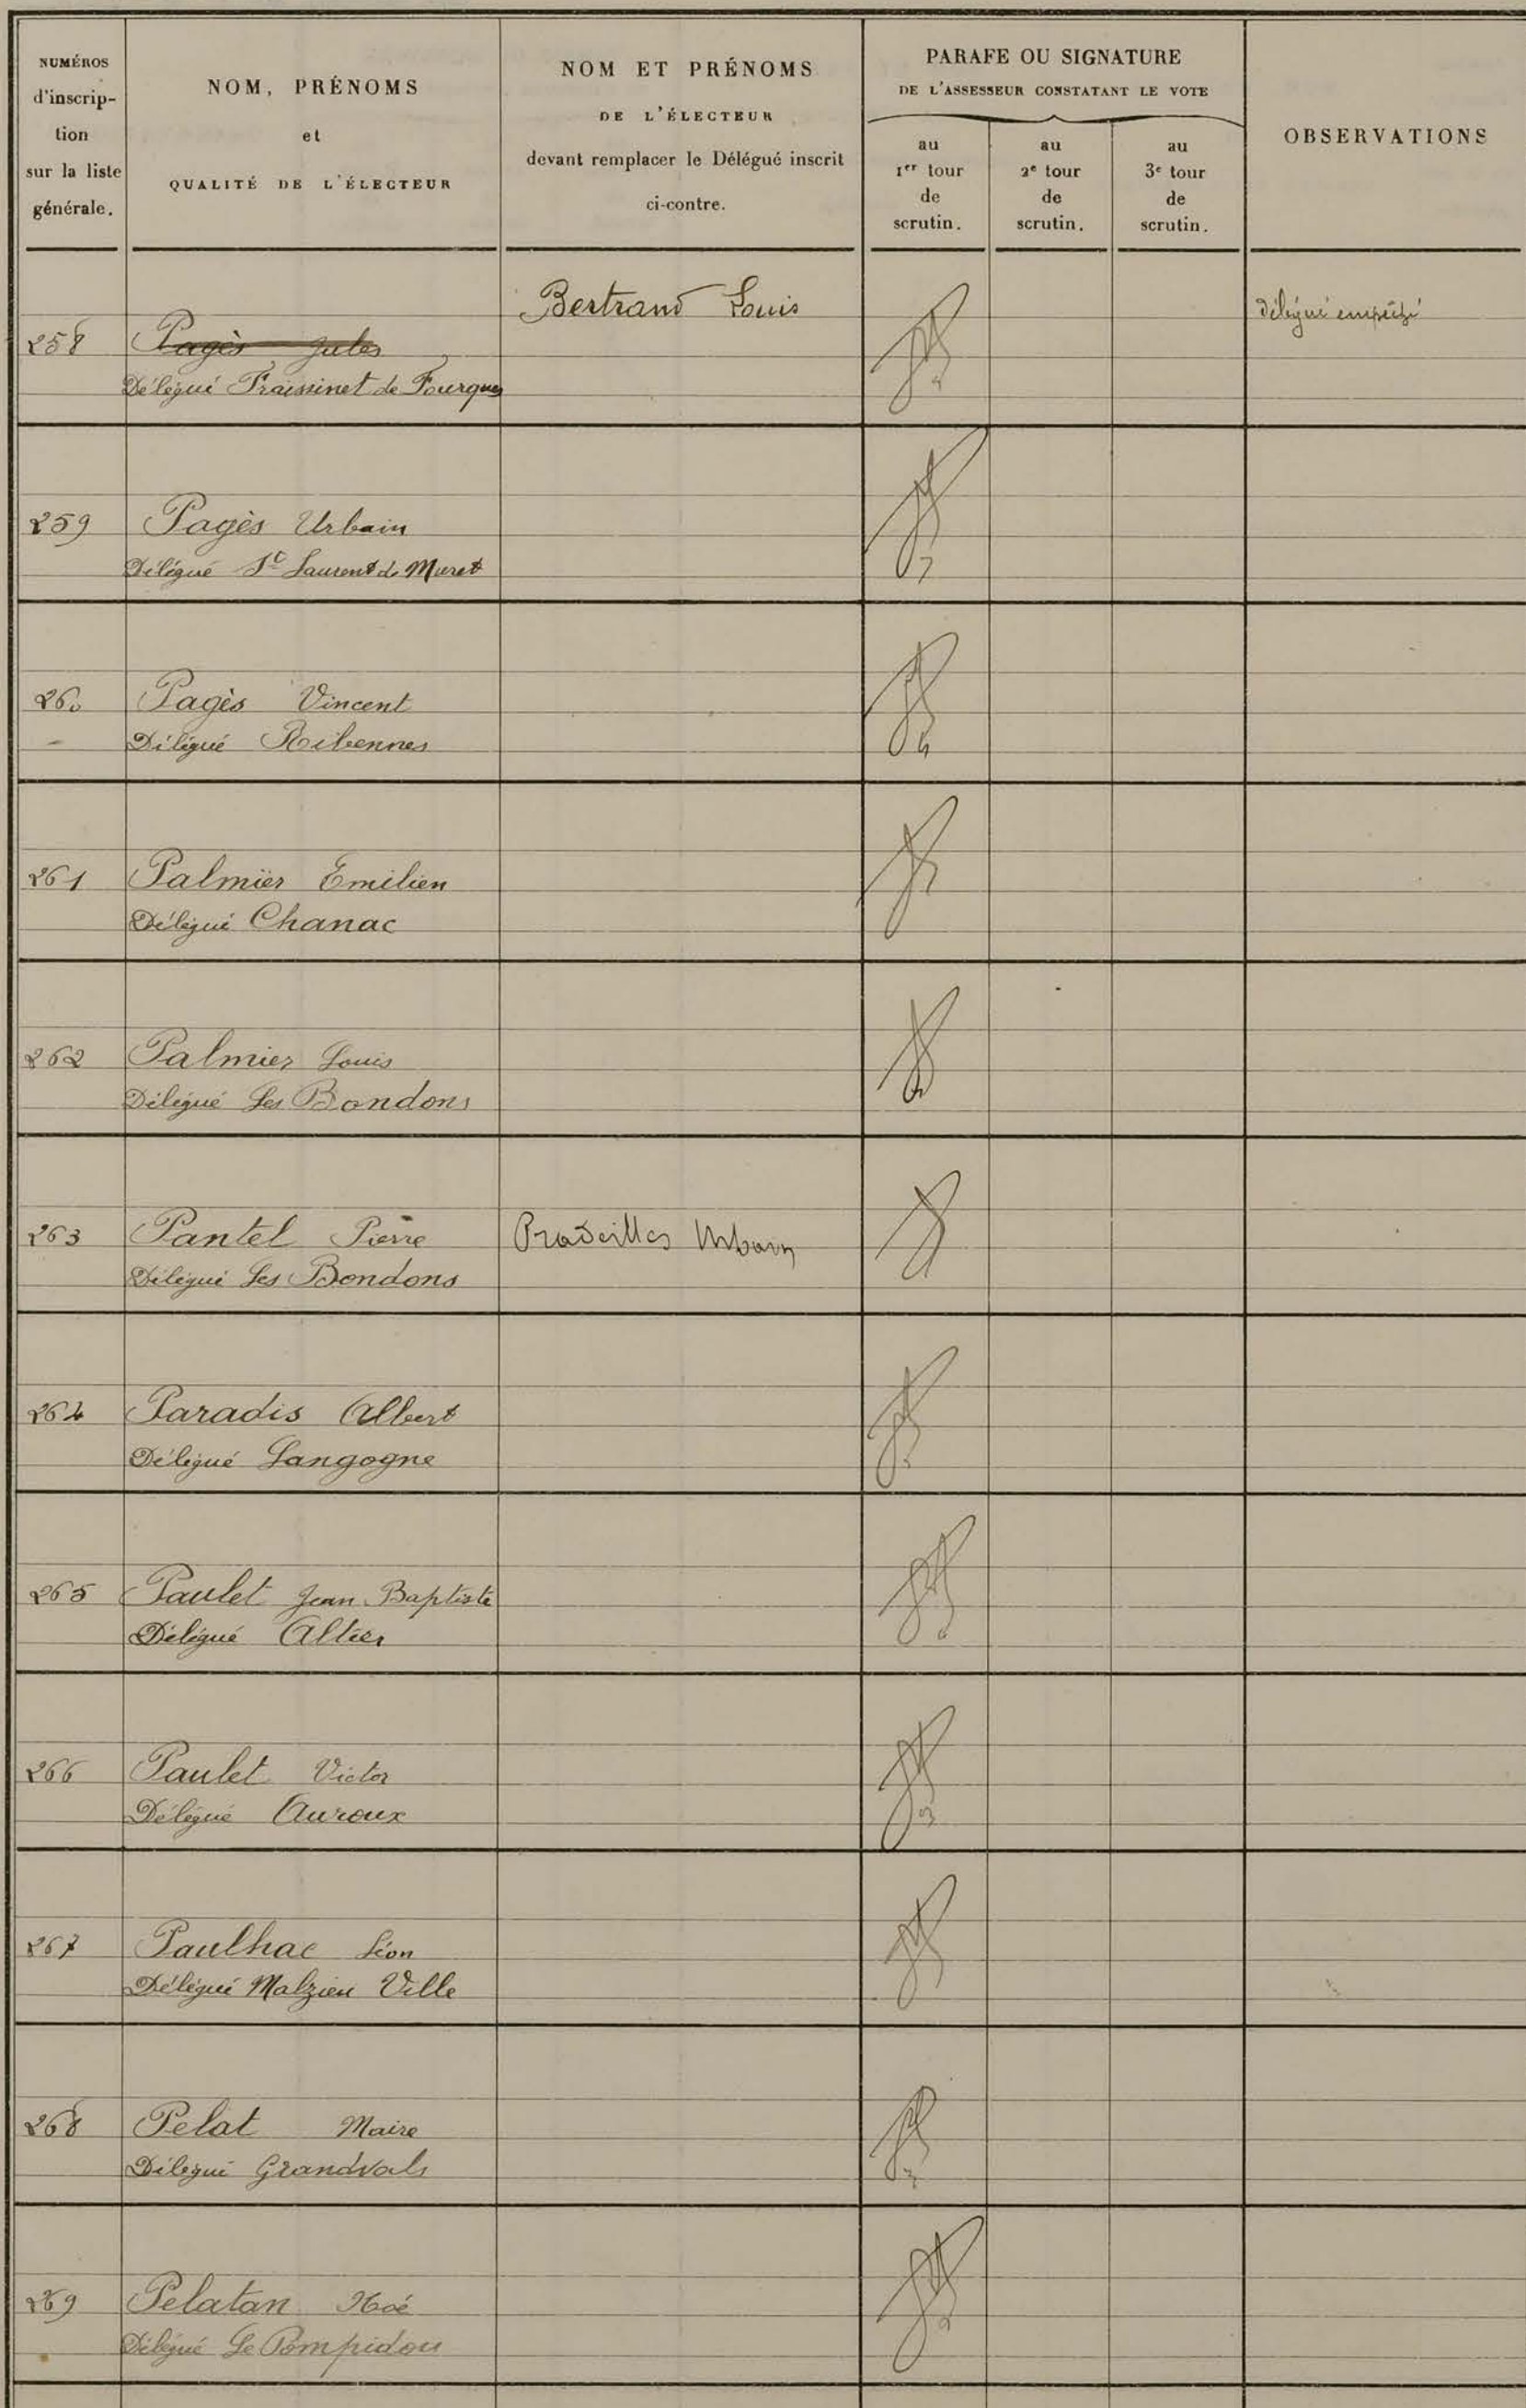 NUMÉROS
d'inscrip-
tion
sur la liste
générale.
NOM, PRÉNOMS
et
QUALITÉ DE L'ÉLECTEUR
NOM ET PRÉNOMS
DE L'ÉLECTEUR
devant remplacer le Délégué inscrit
ci-contre.
PARAFE OU SIGNATURE
DE L'ASSESSEUR CONSTATANT LE VOTE
au
1er tour
de
scrutin.
au
2e tour
de
scrutin.
au
3e tour
de
scrutin.
OBSERVATIONS
Bertrand Louis
délégué empêché
258 Pagès Jules
Délégué Fraissinet de Fourques
259 Pagès Urbain
Délégué St Laurent de Muret
260 Pagès Vincent
Délégué Ribennes
261 Palmier Emilien
Délégué Chanac
262 Palmier Louis
Délégué Les Bondons
263 Pantel Pierre Pradeilles Urbain
Délégué Les Bondons
264 Paradis Albert
Délégué Langogne
265 Paulet Jean Baptiste
Délégué Altier
266 Paulet Victor
Délégué Auroux
267 Paulhac Léon
Délégué Malzieu Ville
268 Pelat Maire
Délégué Grandvals
269 Pelatan Noé
Délégué Le Pompidou